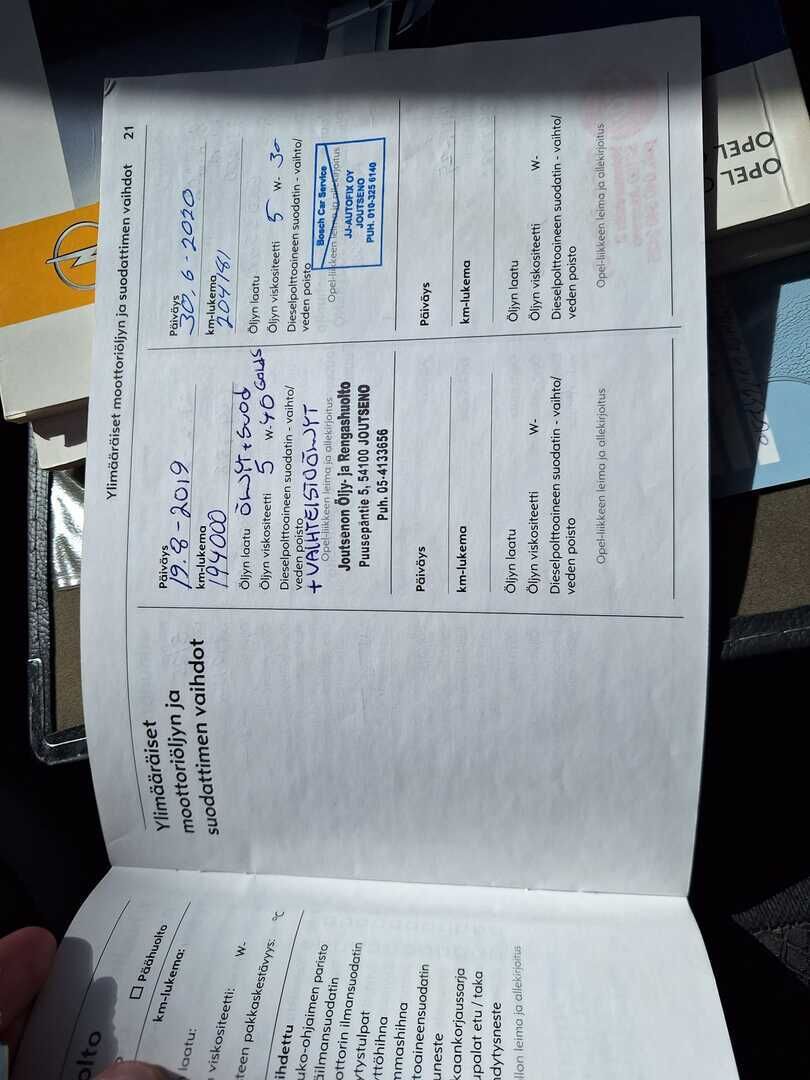 Ylimääräiset moottoriöljyn ja suodattimen vaihdot 21
Ylimääräiset
moottoriöljyn ja
suodattimen vaihdot
Päiväys
19.8-2019
km-lukema
194000
Öljyn laatu ÖLJYT + SUOD
Öljyn viskositeetti 5 W-40 GOLDS
Dieselpolttoaineen suodatin - vaihto/
veden poisto
+ VAIHTEISTOÖLJYT
Opel-liikkeen leima ja allekirjoitus
Joutsenon Öljy- ja Rengashuolto
Puusepäntie 5, 54100 JOUTSENO
Puh. 05-4133656
Päiväys
30.6-2020
km-lukema
204181
Öljyn laatu
Öljyn viskositeetti 5 W-30
Dieselpolttoaineen suodatin - vaihto/
veden poisto
Opel-liikkeen leima ja allekirjoitus
Bosch Car Service
JJ-AUTOFIX OY
JOUTSENO
PUH. 010-325 6140
Päiväys
km-lukema
Öljyn laatu
Öljyn viskositeetti W-
Dieselpolttoaineen suodatin - vaihto/
veden poisto
Opel-liikkeen leima ja allekirjoitus
Päiväys
km-lukema
Öljyn laatu
Öljyn viskositeetti W-
Dieselpolttoaineen suodatin - vaihto/
veden poisto
Opel-liikkeen leima ja allekirjoitus
olto
Päähuolto
km-lukema:
laatu:
viskositeetti: W-
teen pakkaskestävyys: °C
ihdettu
uko-ohjaimen paristo
äilmansuodatin
ottorin ilmansuodatin
ytystulpat
yttöhihna
mmashihna
toaineensuodatin
uneste
kaankorjaussarja
upalat etu / taka
hdytysneste
llon leima ja allekirjoitus
OPEL
OPEL